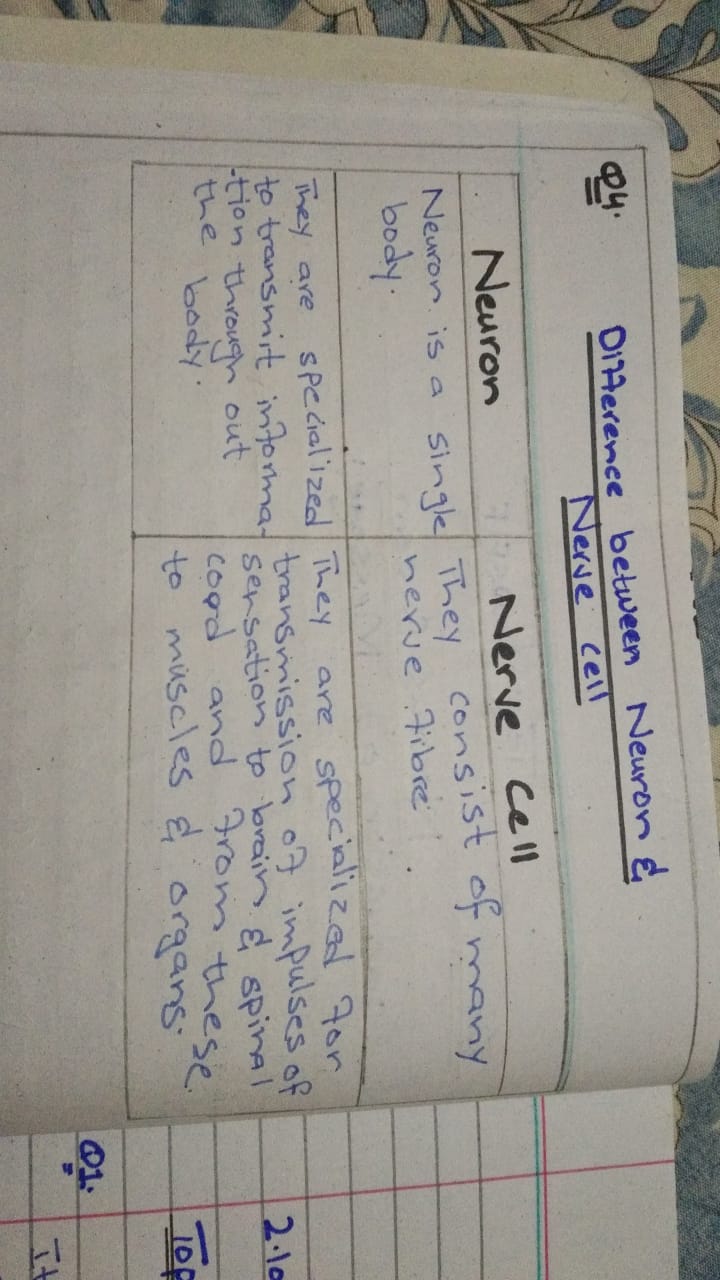 Q4.
Difference between Neuron &
Nerve cell
Neuron
Nerve cell
Neuron is a single
body.
They consist of many
nerve fibre
They are specialized
to transmit informa-
-tion through out
the body.
They are specialized for
transmission of impulses of
sensation to brain & spinal
cord and from these
to muscles & organs.
Q1.